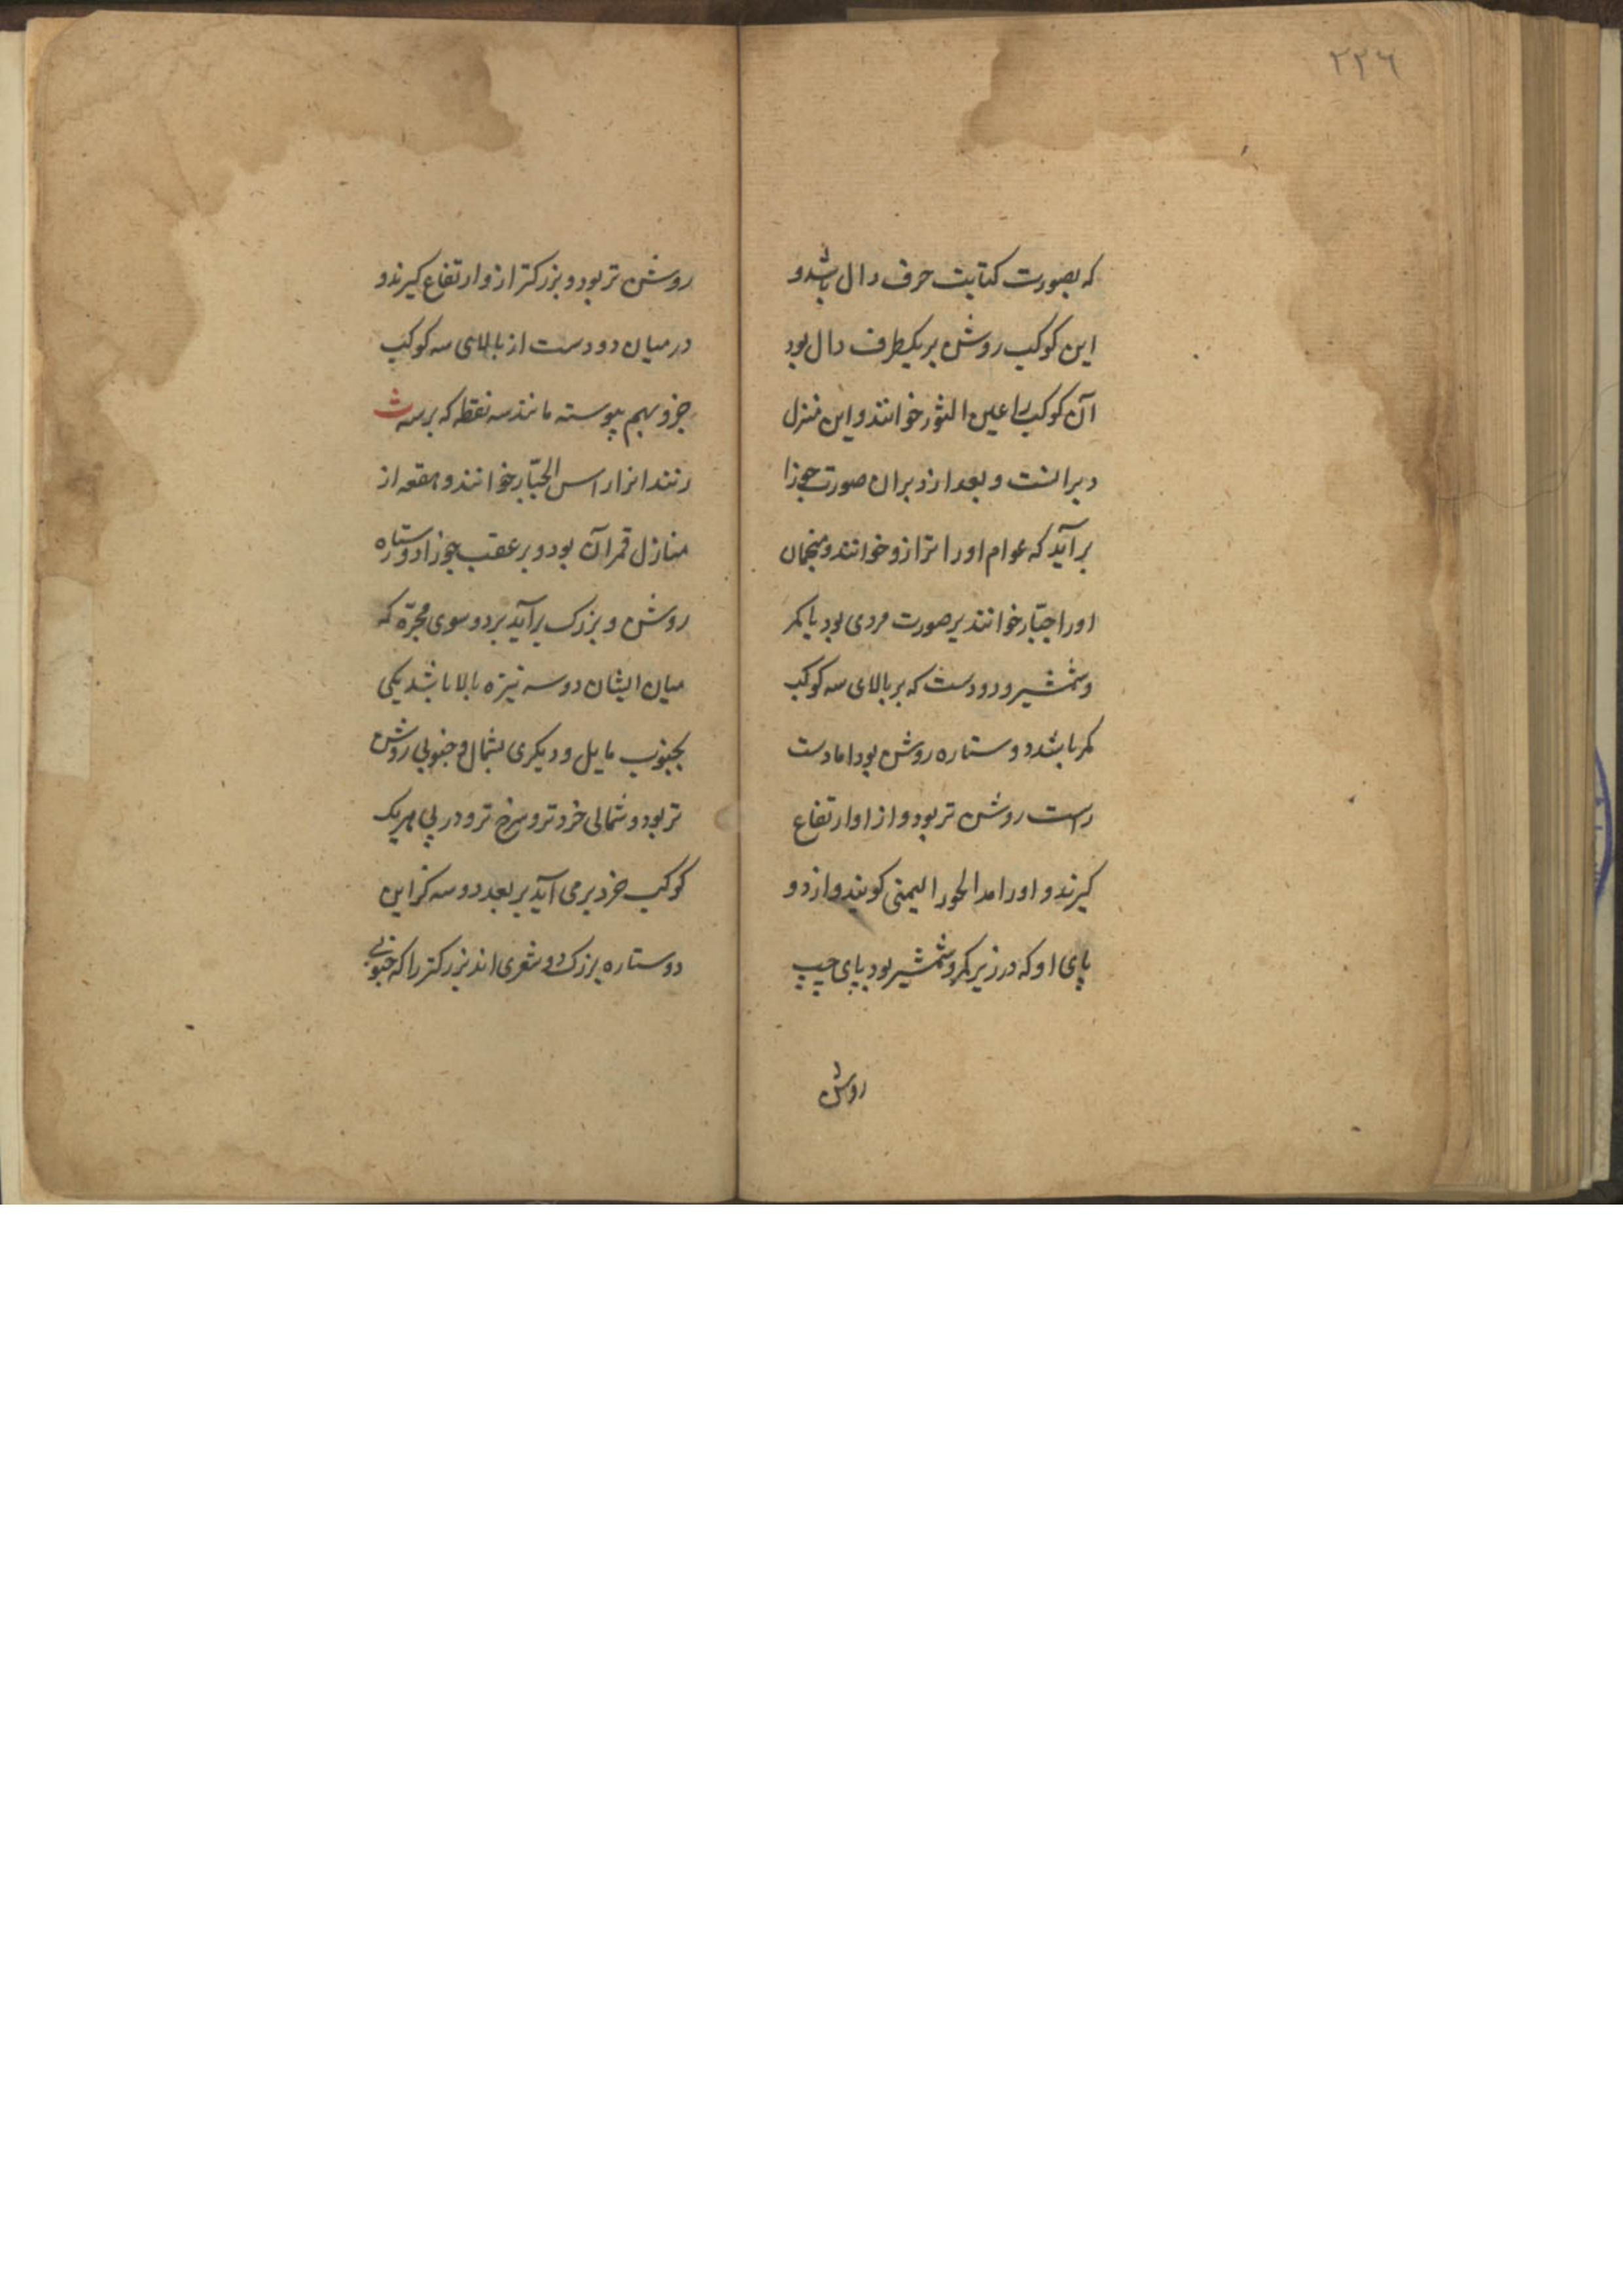 ۲۲۶
که بصورت کتابت حرف دال باشد و
این کوکب روشن بر یکطرف دال بود
آن کوکب را عین الثور خوانند و این منزل
دبرانست و بعد از دبران صورت جوزا
برآید که عوام او را ترازو خوانند و منجمان
او را جبّار خوانند بر صورت مردی بود با کمر
و شمشیر و دو دست که بر بالای سه کوکب
کمر باشد دو ستاره روشن بود اما دست
راست روشن تر بود و از او ارتفاع
کیرند و او را الیمنی کویند و از دو
پای او که در زیر کمر و شمشیر بود پای چپ
روشن
روشن تر بود و بزرکتر ازو ارتفاع کیرند و
در میان دو دست از بالای سه کوکب
خرد بهم پیوسته مانند سه نقطه که بر سر ث
زنند انرا راس الجبّار خوانند و هقعه از
منازل قمر آن بود و بر عقب جوزا دو ستاره
روشن و بزرک برآید بر دو سوی مجرّه که
میان ایشان دو سه نیزه بالا باشد یکی
بجنوب مایل و دیکری بشمال و جنوبی روشن
تر بود و شمالی خردتر و سرخ تر و در پی هر یک
کوکب خرد برمی آید بر بعد دو سه کز این
دو ستاره بزرک دو شعری اند بزرکتر را که جنوبی